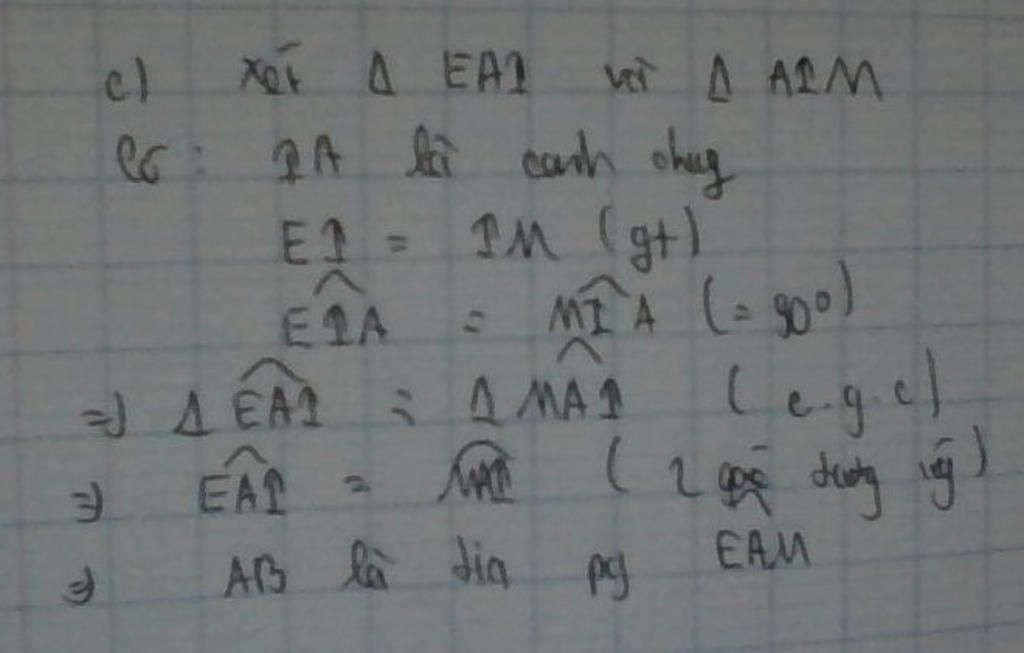 c) Xét Δ EAI và Δ AIM
Có : IA là cạnh chung
EI = IM (gt)
EIA = MIA (= 90°)
=> Δ EAI = Δ MAI (c.g.c)
=> EAI = MAI (2 góc tương ứng)
=> AB là tia pg EAM